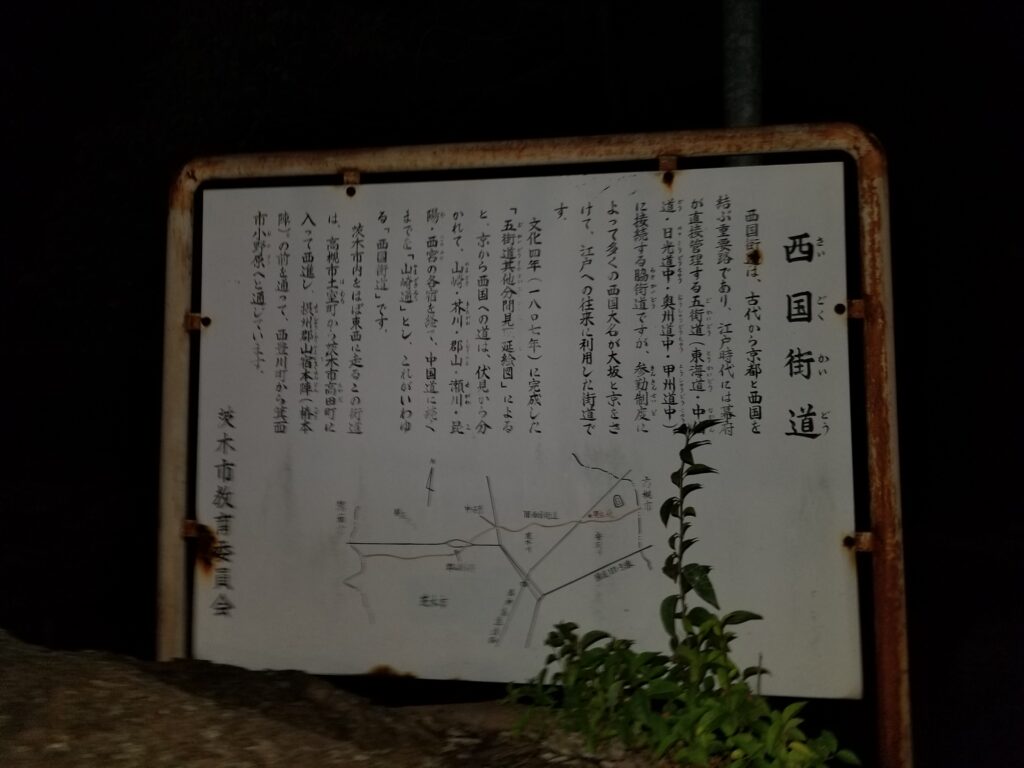 西国街道
さいごくかいどう
西国街道は、古代から京都と西国を
結ぶ重要路であり、江戸時代には幕府
が直接管理する五街道(東海道・中山
道・日光道中・奥州道中・甲州道中)
に接続する脇街道ですが、参勤制度に
よって多くの西国大名が大坂と京をさ
けて、江戸への往来に利用した街道で
す。
文化四年(一八〇七年)に完成した
「五街道其他分間見延絵図」による
と、京から西国への道は、伏見から分
かれて、山崎・芥川・郡山・瀬川・昆
陽・西宮の各宿を経て、中国道に続く
までを「山崎道」とし、これがいわゆ
る「西国街道」です。
茨木市内をほぼ東西に走るこの街道
は、高槻市土室町から茨木市高田町に
入って西進し、摂州郡山宿本陣(椿本
陣)の前を通って、西豊川町から箕面
市小野原へと通じています。
茨木市教育委員会
茨木市